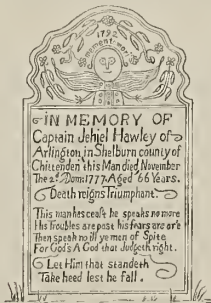 1792
mument-mori
IN MEMORY OF
Captain Jehiel Hawley of
Arlington in Shelburn county of
Chittenden this Man died November
The 2d Domi 1777. Aged 66 Years.
Death reigns Triumphant.
This man hes ceast he speaks no more
His troubles are past his fears are o'er
Then speak no ill ye men of Spite
For God's A God that Judgeth right.
Let Him that standeth
Take heed lest he fall.